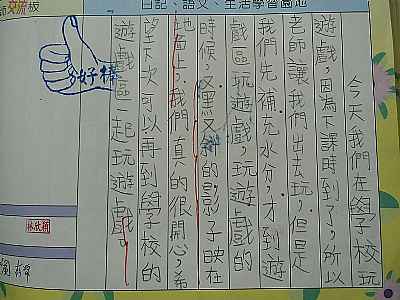 師交流板
日記、語文、生活學習園地
今天我們在學校玩
遊戲，因為下課時到了，所以
老師讓我們出去玩，但是
我們先補充水分，才到遊
戲區玩遊戲，玩遊戲的
時候，又黑又斜的影子映在
地面上，我們真的很開心，希
望下次可以再到學校的
遊戲區一起玩遊戲。
好棒